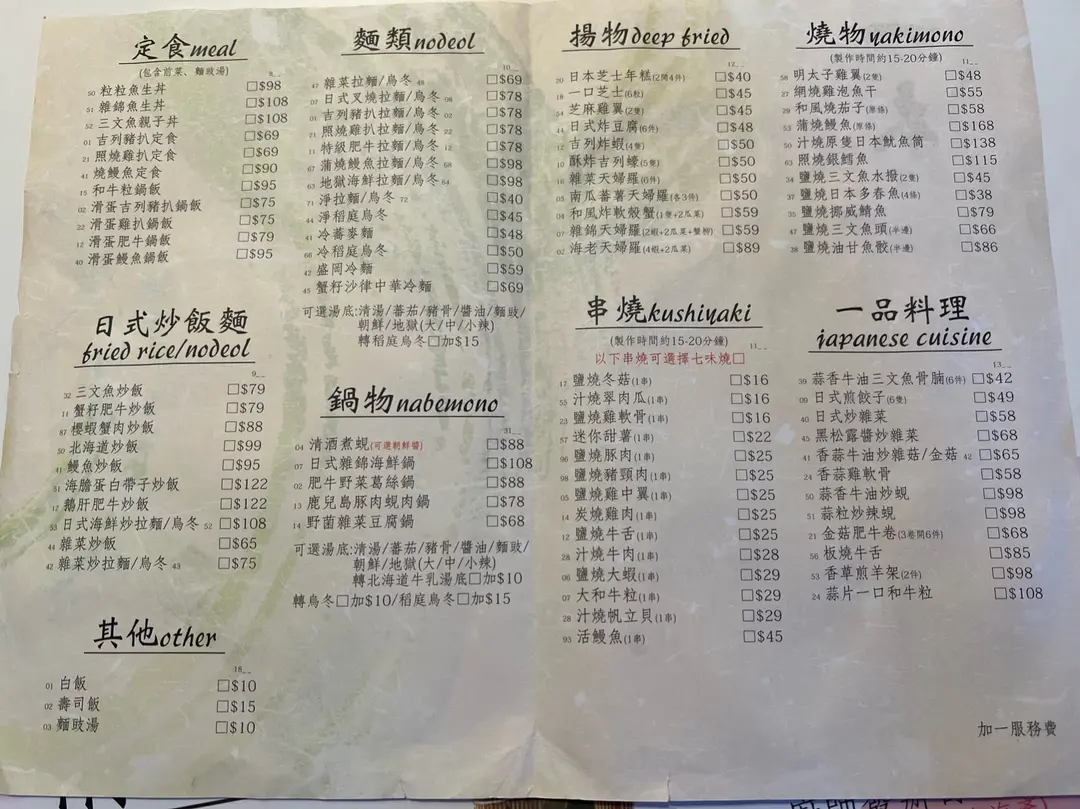 定食meal
(包含前菜、麵豉湯)
8__
50 粒粒魚生丼 □$98
51 雜錦魚生丼 □$108
52 三文魚親子丼 □$108
01 吉列豬扒定食 □$69
21 照燒雞扒定食 □$69
41 燒鰻魚定食 □$90
15 和牛粒鍋飯 □$95
02 滑蛋吉列豬扒鍋飯 □$75
22 滑蛋雞扒鍋飯 □$75
12 滑蛋肥牛鍋飯 □$79
40 滑蛋鰻魚鍋飯 □$95
日式炒飯麵
fried rice/nodeol
9__
32 三文魚炒飯 □$79
11 蟹籽肥牛炒飯 □$79
87 櫻蝦蟹肉炒飯 □$88
50 北海道炒飯 □$99
41 鰻魚炒飯 □$95
51 海膽蛋白帶子炒飯 □$122
12 鵝肝肥牛炒飯 □$122
53 日式海鮮炒拉麵/烏冬 52 □$108
44 雜菜炒飯 □$65
42 雜菜炒拉麵/烏冬 43 □$75
其他other
18__
01 白飯 □$10
02 壽司飯 □$15
03 麵豉湯 □$10
麵類nodeol
10__
47 雜菜拉麵/烏冬 48 □$69
07 日式叉燒拉麵/烏冬 08 □$78
01 吉列豬扒拉麵/烏冬 02 □$78
21 照燒雞扒拉麵/烏冬 22 □$78
11 特級肥牛拉麵/烏冬 12 □$78
67 蒲燒鰻魚拉麵/烏冬 68 □$98
63 地獄海鮮拉麵/烏冬 64 □$98
71 淨拉麵/烏冬 72 □$40
44 淨稻庭烏冬 □$45
41 冷蕎麥麵 □$48
66 冷稻庭烏冬 □$50
42 盛岡冷麵 □$59
45 蟹籽沙律中華冷麵 □$69
可選湯底:清湯/蕃茄/豬骨/醬油/麵豉/
朝鮮/地獄(大/中/小辣)
轉稻庭烏冬□加$15
鍋物nabemono
31__
04 清酒煮蜆(可選朝鮮醬) □$88
07 日式雜錦海鮮鍋 □$108
02 肥牛野菜葛絲鍋 □$88
13 鹿兒島豚肉蜆肉鍋 □$78
14 野菌雜菜豆腐鍋 □$68
可選湯底:清湯/蕃茄/豬骨/醬油/麵豉/
朝鮮/地獄(大/中/小辣)
轉北海道牛乳湯底□加$10
轉烏冬□加$10/稻庭烏冬□加$15
揚物deep fried
12__
20 日本芝士年糕(2開4件) □$40
18 一口芝士(6粒) □$45
54 芝麻雞翼(2隻) □$45
44 日式炸豆腐(6件) □$48
12 吉列炸蝦(4隻) □$50
10 酥炸吉列蠔(5隻) □$50
16 雜菜天婦羅(6件) □$50
03 南瓜蕃薯天婦羅(各3件) □$50
04 和風炸軟殼蟹(1隻+2瓜菜) □$59
07 雜錦天婦羅(2蝦+2瓜菜+蟹柳) □$59
02 海老天婦羅(4蝦+2瓜菜) □$89
串燒kushiyaki
(製作時間約15-20分鐘)
11__
以下串燒可選擇七味燒□
17 鹽燒冬菇(1串) □$16
55 汁燒翠肉瓜(1串) □$16
23 鹽燒雞軟骨(1串) □$16
57 迷你甜薯(1串) □$22
96 鹽燒豚肉(1串) □$25
98 鹽燒豬頸肉(1串) □$25
05 鹽燒雞中翼(1串) □$25
14 炭燒雞肉(1串) □$25
12 鹽燒牛舌(1串) □$25
28 汁燒牛肉(1串) □$28
06 鹽燒大蝦(1串) □$29
07 大和牛粒(1串) □$29
28 汁燒帆立貝(1串) □$29
93 活鰻魚(1串) □$45
燒物yakimono
(製作時間約15-20分鐘)
11__
58 明太子雞翼(2隻) □$48
27 網燒雞泡魚干 □$55
29 和風燒茄子(原條) □$58
53 蒲燒鰻魚(原條) □$168
50 汁燒原隻日本魷魚筒 □$138
63 照燒銀鱈魚 □$115
34 鹽燒三文魚水撥(2隻) □$45
36 鹽燒日本多春魚(4條) □$38
35 鹽燒挪威鯖魚 □$79
47 鹽燒三文魚頭(半邊) □$66
38 鹽燒油甘魚骹(半邊) □$86
一品料理
japanese cuisine
13__
39 蒜香牛油三文魚骨腩(6件) □$42
09 日式煎餃子(6隻) □$49
40 日式炒雜菜 □$58
45 黑松露醬炒雜菜 □$68
41 香蒜牛油炒雜菇/金菇 42 □$65
24 香蒜雞軟骨 □$58
50 蒜香牛油炒蜆 □$98
51 蒜粒炒辣蜆 □$98
21 金菇肥牛卷(3卷開6件) □$68
56 板燒牛舌 □$85
53 香草煎羊架(2件) □$98
24 蒜片一口和牛粒 □$108
加一服務費